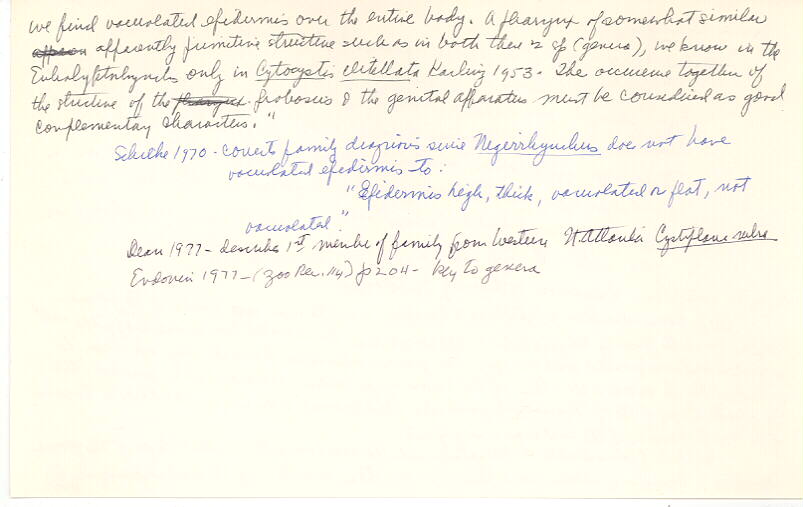 we find vacuolated epidermis over the entire body. A pharynx of somewhat similar
apparently primitive structure such as in both these 2 sp (genera), we know in the
Eukalyptorhynchs only in Cytocystis clitellata Karling 1953. The occurrence together of
the structure of the pharynx proboscis & the genital apparatus must be considered as good
complementary characters."
Schilke 1970 - corrects family diagnosis since Nigerrhynchus does not have
vacuolated epidermis to:
"Epidermis high, thick, vacuolated or flat, not
vacuolated."
Dean 1977 - describes 1st member of family from Western N Atlantic Cystiplana rubra
Evdonin 1977 - (Zoo Rev. 114) p 204 - Key to genera